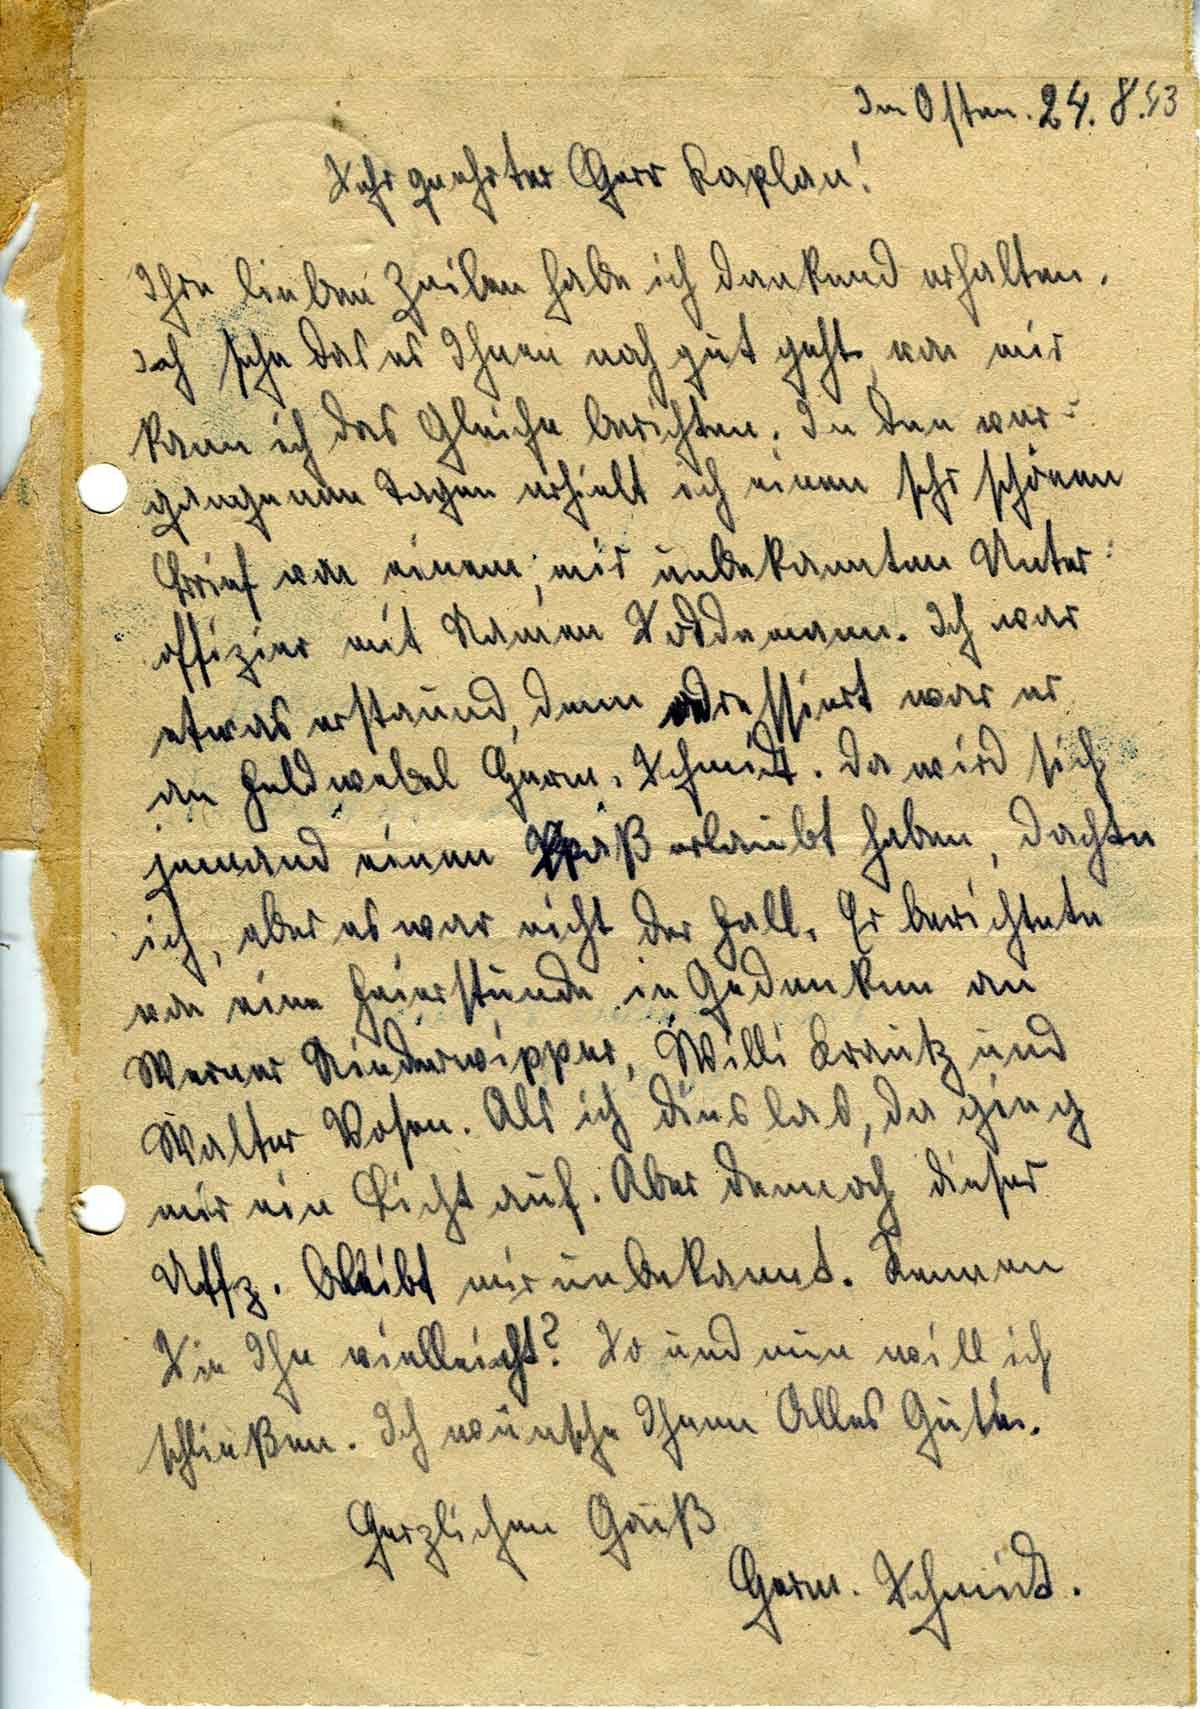 Im Osten. 24. 8. 43
Sehr geehrter Herr Kaplan!
Ihre lieben Zeilen habe ich dankend erhalten.
Ich sehe das es Ihnen noch gut geht, von mir
kann ich das Gleiche berichten. In den ver-
gangenen Tagen erhielt ich einen sehr schönen
Brief von einem, mir unbekannten Unter-
offizier mit Namen. Ich war
etwas erstaund, denn adressiert war er
an Feldwebel Herm. Schmidt. Da wird sich
jemand einen Spaß erlaubt haben, dachte
ich, aber es war nicht der Fall. Er berichtete
von eine Feierstunde in Gedenken an
Werner Niederwipper, Willi Krautz und
Walter Vosen. Als ich dies las, da ging
mir ein Licht auf. Aber dennoch dieser
Uffz. bleibt mir unbekannt. Kennen
Sie Ihn vielleicht? So und nun will ich
schließen. Ich wünsche Ihnen Alles Gute.
Herzlichen Gruß
Herm. Schmidt.